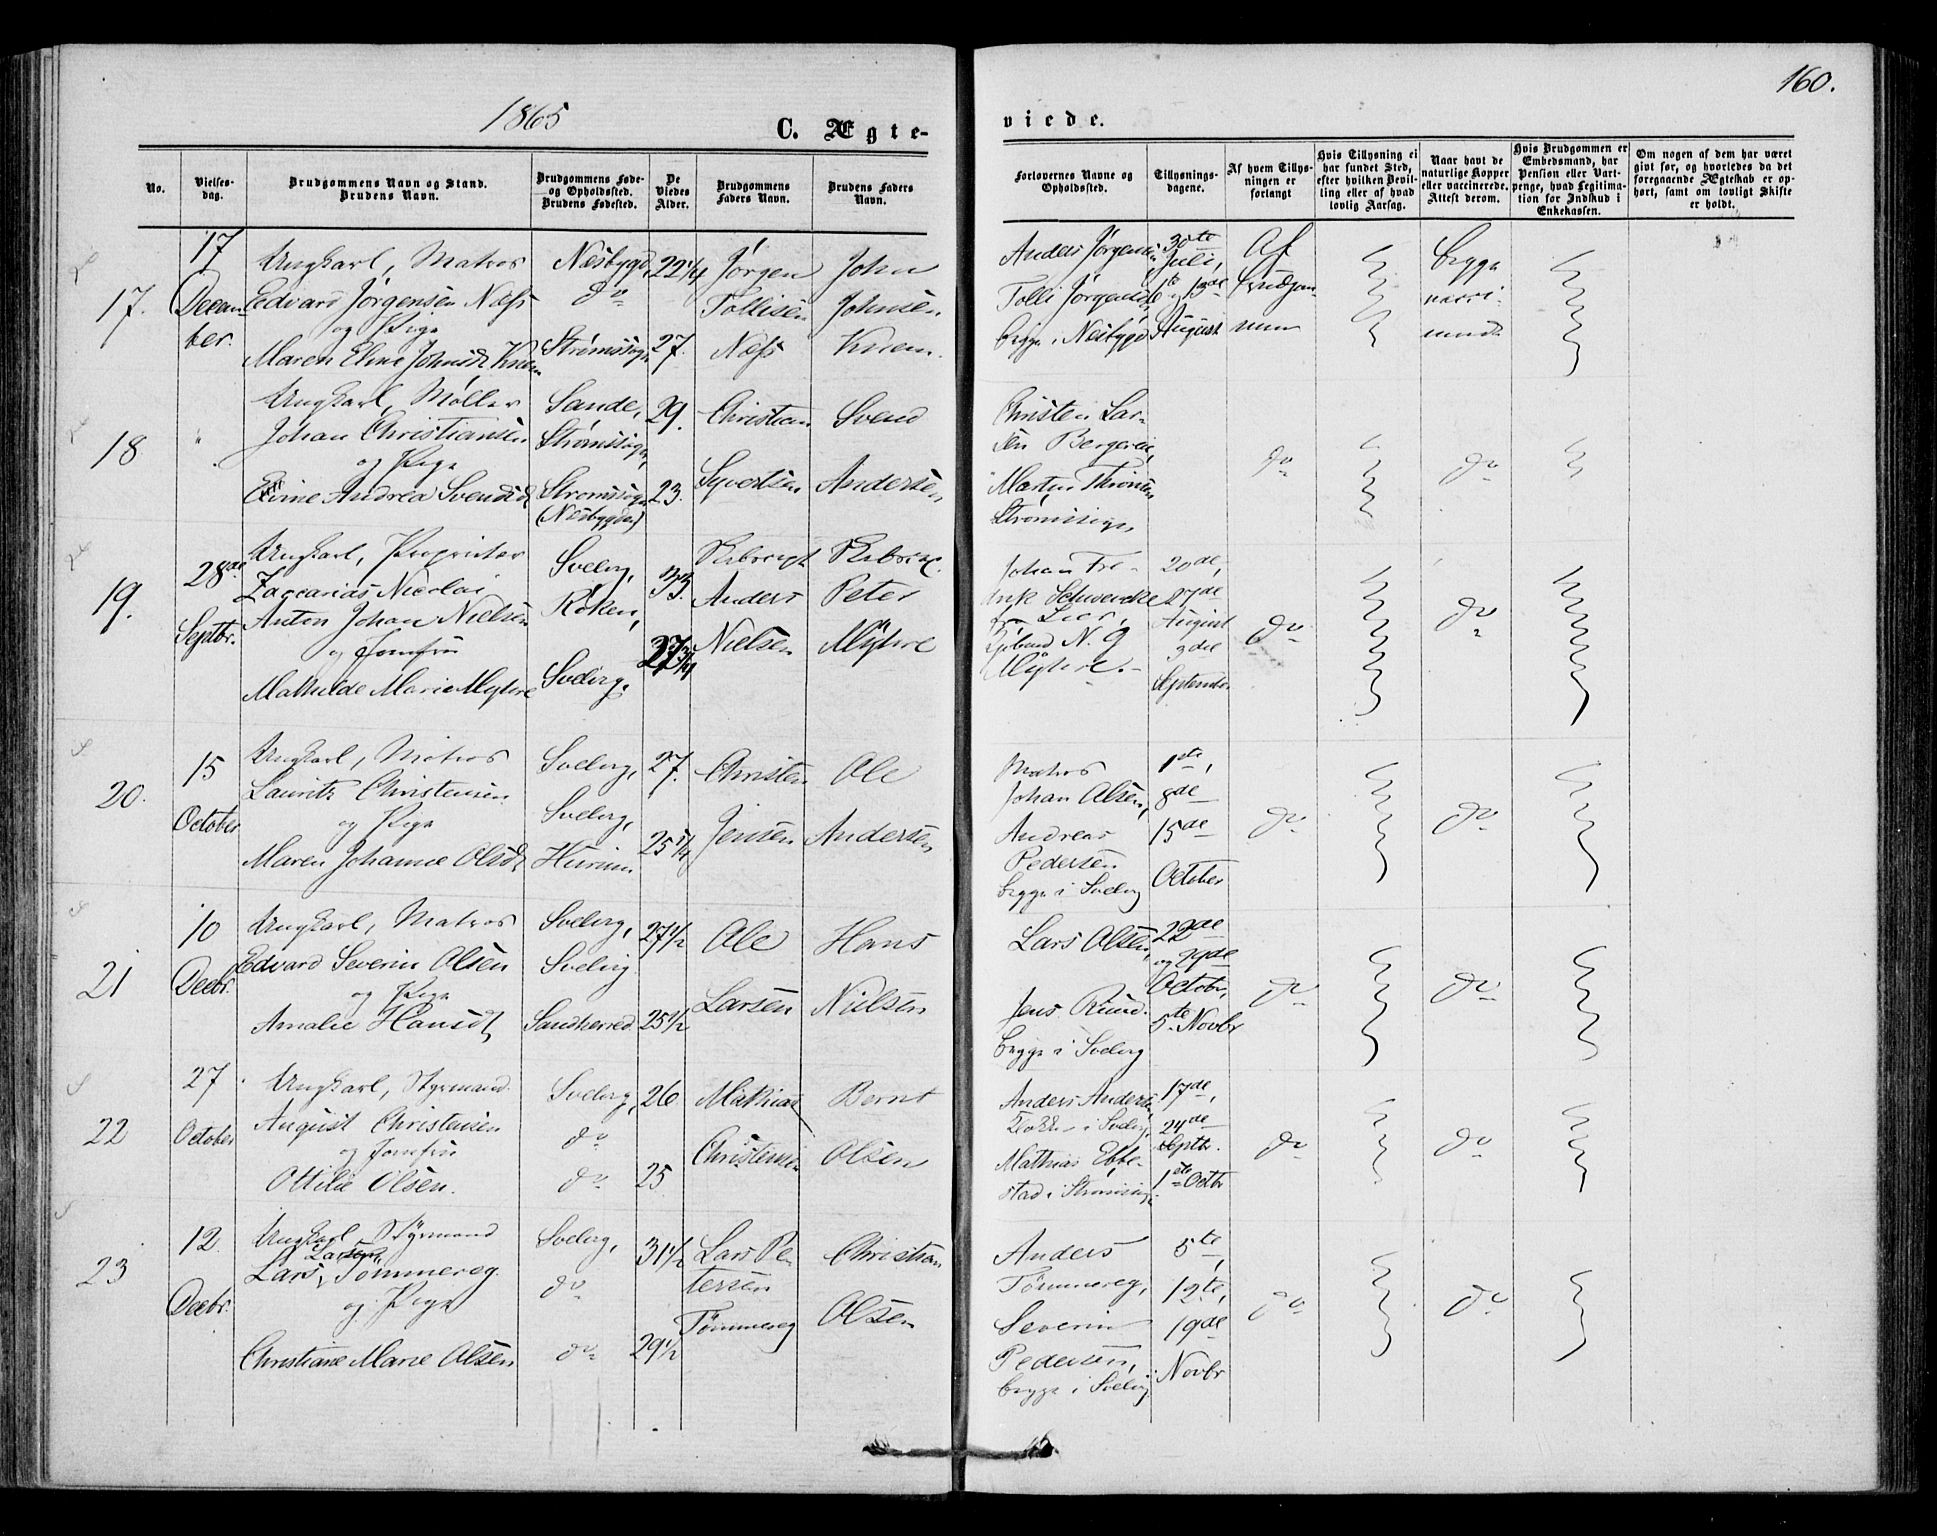 1865
160.
C. Ægte-
viede.
No.
Vielses-
dag.
Brudgommens Navn og Stand.
Brudens Navn.
Brudgommens Føde-
og Opholdssted.
Brudens Fødested.
De
Viedes
Alder.
Brudgommens
Faders Navn.
Brudens Faders
Navn.
Forlovernes Navne og
Opholdssted.
Tillysnings-
dagene.
Af hvem Tillys-
ningen er
forlangt
Hvis Tillysning ei
har fundet Sted,
efter hvilken Bevil-
ling eller af hvad
lovlig Aarsag.
Naar havt de
naturlige Kopper
eller vaccinerede.
Attest derom.
Hvis Brudgommen er
Embedsmand, har
Pension eller Vart-
penge, hvad Legitima-
tion for Indskud i
Enkekassen.
Om nogen af dem har været
givt før, og hvorledes da det
foregaaende Ægteskab er op-
hørt, samt om lovligt Skifte
er holdt.
17.
17
Decem-
ber.
Ungkarl, Matros
Edvard Jørgensen Næss
og Pige
Maren Eline Johnsdt
Nesbygd,
do
Strømssogn
22 1/4
27.
Jørgen
Tollisen
Næss
John
Johnsen
Anders Jørgensen
Tolli Jørgensen
begge i Nesbygd
30te
Juli,
13de
August
Af
Brudgom-
men
begge
vacci-
nerede
18
"
Ungkarl, Møller
Johan Christiansen
og Pige
Andrea Svendsdt
Sande,
Strømssogn,
Strømssogn
(Nesbygden)
29.
23.
Christian
Syvertsen
Svend
Andersen
Christen Lar-
sen
Morten
Strømssogn,
do
do
19.
28de
Septbr.
Ungkarl, Proprietær
Zaccarias Nicolai
Anton Johan Nielsen
og Jomfru
Mathilde Marie Myhre
Svelvig,
Røken,
Svelvig.
33.
27 3/4
Anders
Nielsen
Peter
Myhre
Johan Fre-
drik Schwencke
Lier,
N. G
Myhre.
20de,
27de
August
3die
September
do
do
20.
15
October
Ungkarl, Matros
Lauritz Christensen
og Pige
Maren Johanne Olsdt
Svelvig,
Svelvig,
Hurum
27.
25 1/4
Christen
Jensen
Ole
Andersen
Matros
Johan Olsen,
Andreas
Pedersen
begge i Svelvig
1ste,
8de
15de
October
do
do
21
10
Decbr.
Ungkarl, Matros
Edvard Severin Olsen
og Pige
Amalie Hansdt
Svelvig,
Svelvig
Sandherred
27 1/2
25 1/2
Ole
Larsen
Hans
Nielsen
Lars Olsen,
Jens Ruud.
begge i Svelvig
22de
og 29de
Octobr,
5te Novbr
do
do
22
27
October
Ungkarl, Styrmand
August Christensen
og Jomfru
Ottilie Olsen.
Svelvig,
do
do
26
25
Mathias
Christensen
Bernt
Olsen
Anders Andersen,
i Svelvig,
Mathias Ebbe-
stad i Strømssogn
17de,
24de
Septbr.
1ste Octbr
do
do
23
12
Decbr.
Ungkarl, Styrmand
Larsen
Lars, Tømmereg.
og Pige
Christiane Marie Olsen
Svelvig,
do
do
31 1/2
29 1/2
Lars Pe-
tersen
Tømmereg
Christian
Olsen
Anders
Tømmereg,
Severin
Pedersen,
begge i Svelvig
5te,
12te,
19de
Novbr
do
do